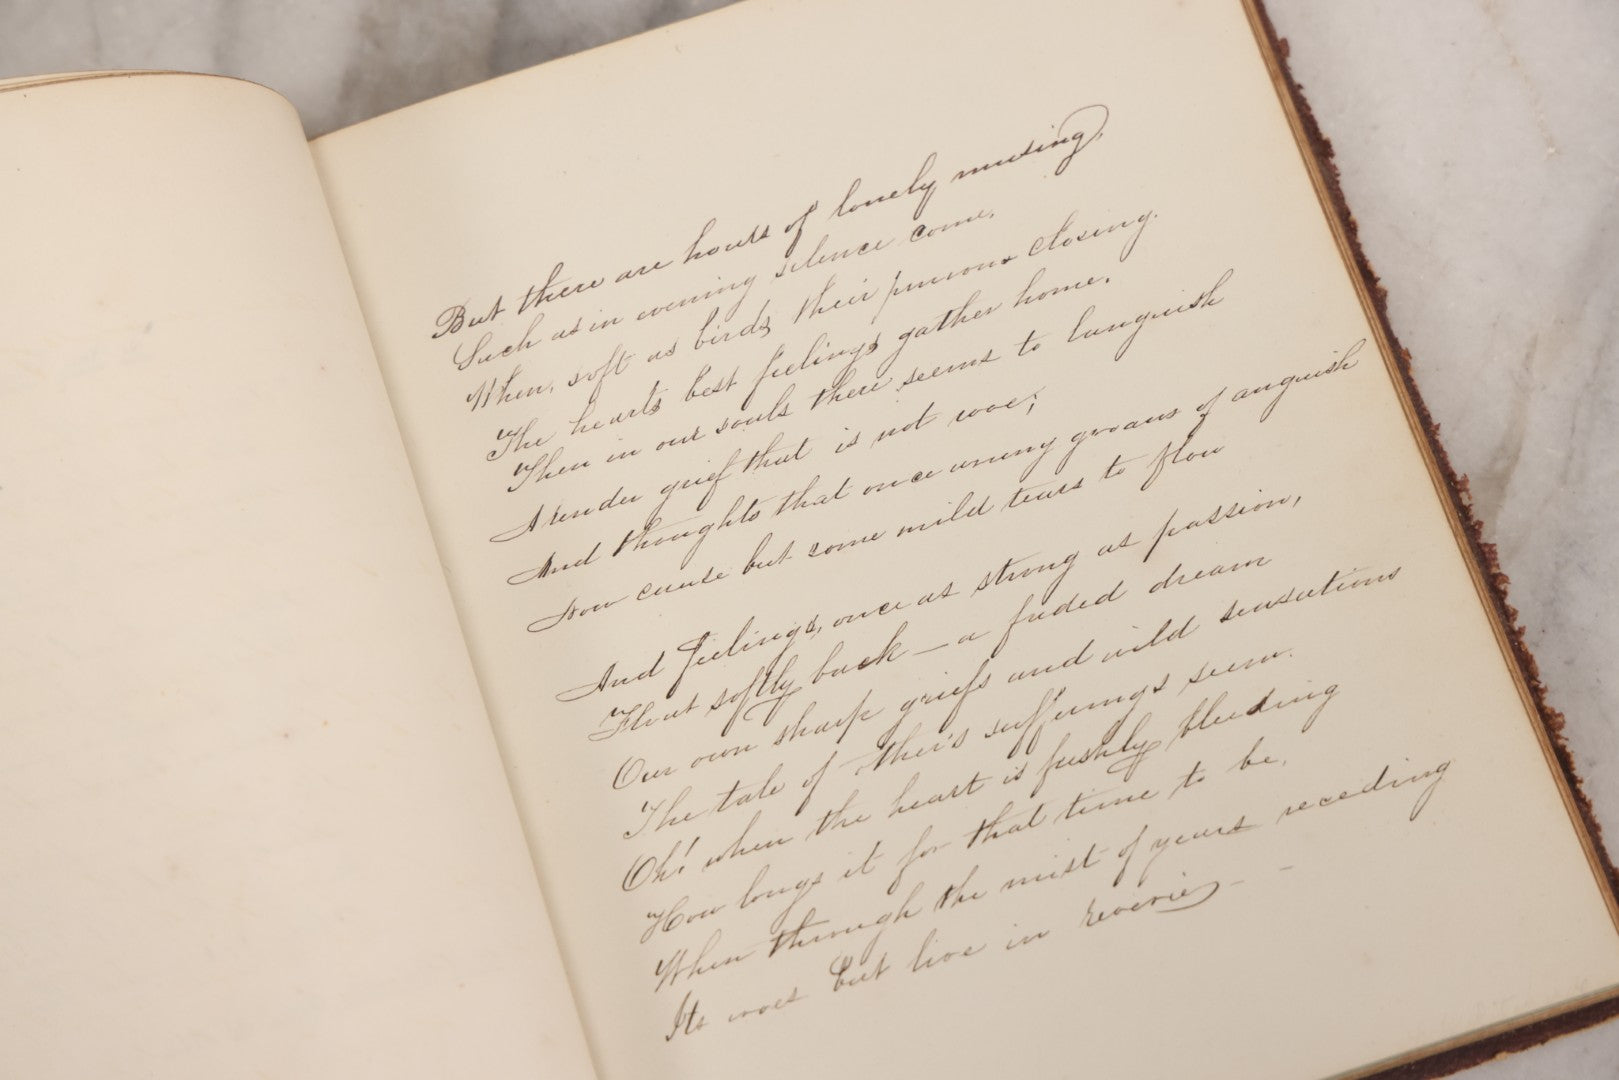 But there are hours of lonely musing,
Such as in evening silence come,
When, soft as birds their pinions closing,
The hearts best feelings gather home.
Then in our souls there seems to languish
A tender grief that is not woe;
And thoughts that once wrung groans of anguish
Now cause but some mild tears to flow
And feelings, once as strong as passion,
Float softly back – a faded dream
Our own sharp griefs and wild sensations
The tale of other's sufferings seem.
Oh! when the heart is freshly bleeding
How longs it for that time to be,
When through the mist of years receding
Its woes but live in reverie - -